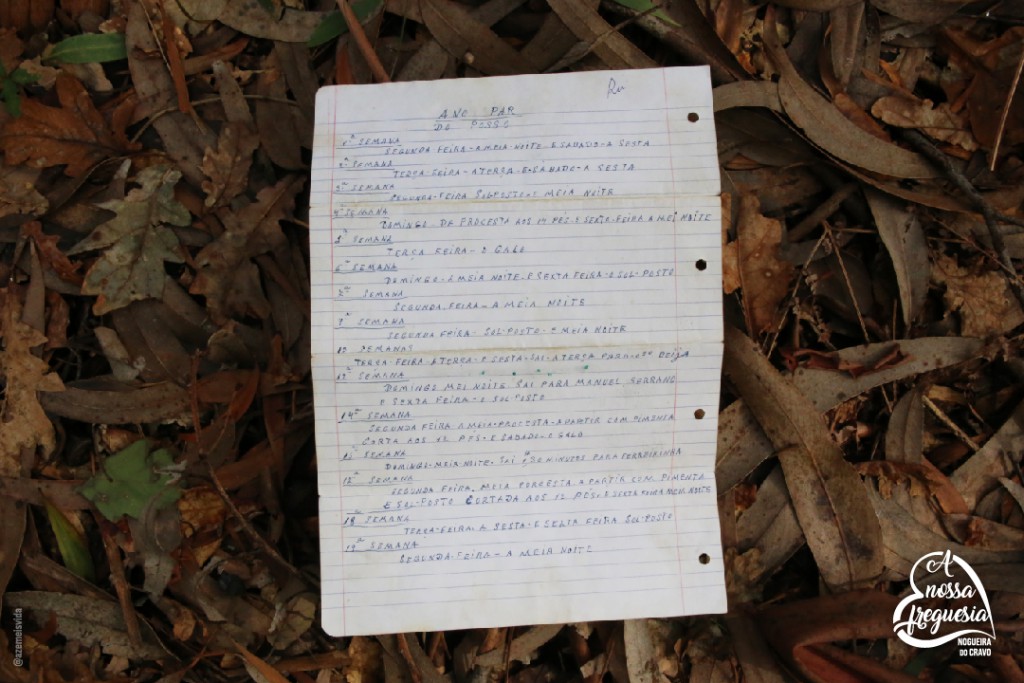 Ru
ANO PAR
DO POSSO
1ª SEMANA
SEGUNDA FEIRA - A MEIA-NOITE E SABADO - A SESTA
2ª SEMANA
TERÇA-FEIRA - A TERSA E SABADO - A SESTA
3ª SEMANA
SEGUNDA-FEIRA SOL POSTO E MEIA NOITE
4ª SEMANA
DOMINGO DA PROCESTA AOS 12 PES E SEXTA-FEIRA A MEI NOITE
5ª SEMANA
TERÇA FEIRA - O GALO
6ª SEMANA
DOMINGO - A MEIA NOITE E SEXTA FEIRA - O SOL-POSTO
SEMANA
SEGUNDA-FEIRA - A MEIA NOITE
SEMANA
SEGUNDA FEIRA - SOL-POSTO - E MEIA NOITE
SEMANAS
TERÇA-FEIRA A TERÇA - E SESTA - SAI - A TERÇA PARA
SEMANA
DOMINGO MEI NOITE SAI PARA MANUEL SERRANO
E SEXTA FEIRA - O SOL-POSTO
14ª SEMANA
SEGUNDA FEIRA A MEIA-PROCESTA - A PARTIR COM PIMENTA
CORTA AOS 12 PES - E SABADO - O GALO
SEMANA
DOMINGO - MEIA-NOITE - SAI 30 MINUTOS PARA
SEMANA
SEGUNDA FEIRA. MEIA PORCESTA A PARTIR COM PIMENTA
E SOL-POSTO CORTADA AOS 12 PES - E SEXTA FEIRA MEIA NOITE
18ª SEMANA
TERÇA-FEIRA. A SESTA - E SEXTA FEIRA SOL-POSTO
19ª SEMANA
SEGUNDA-FEIRA - A MEIA NOITE
@azemeisvida
A nossa freguesia
NOGUEIRA
DO CRAVO